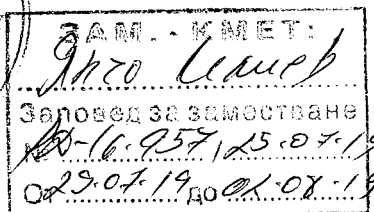 ЗАМ. - КМЕТ:
Янчо Илиев
Заповед за заместване
№ РД-16-957, 25.07.19
От 29.07.19 до 02.08.19